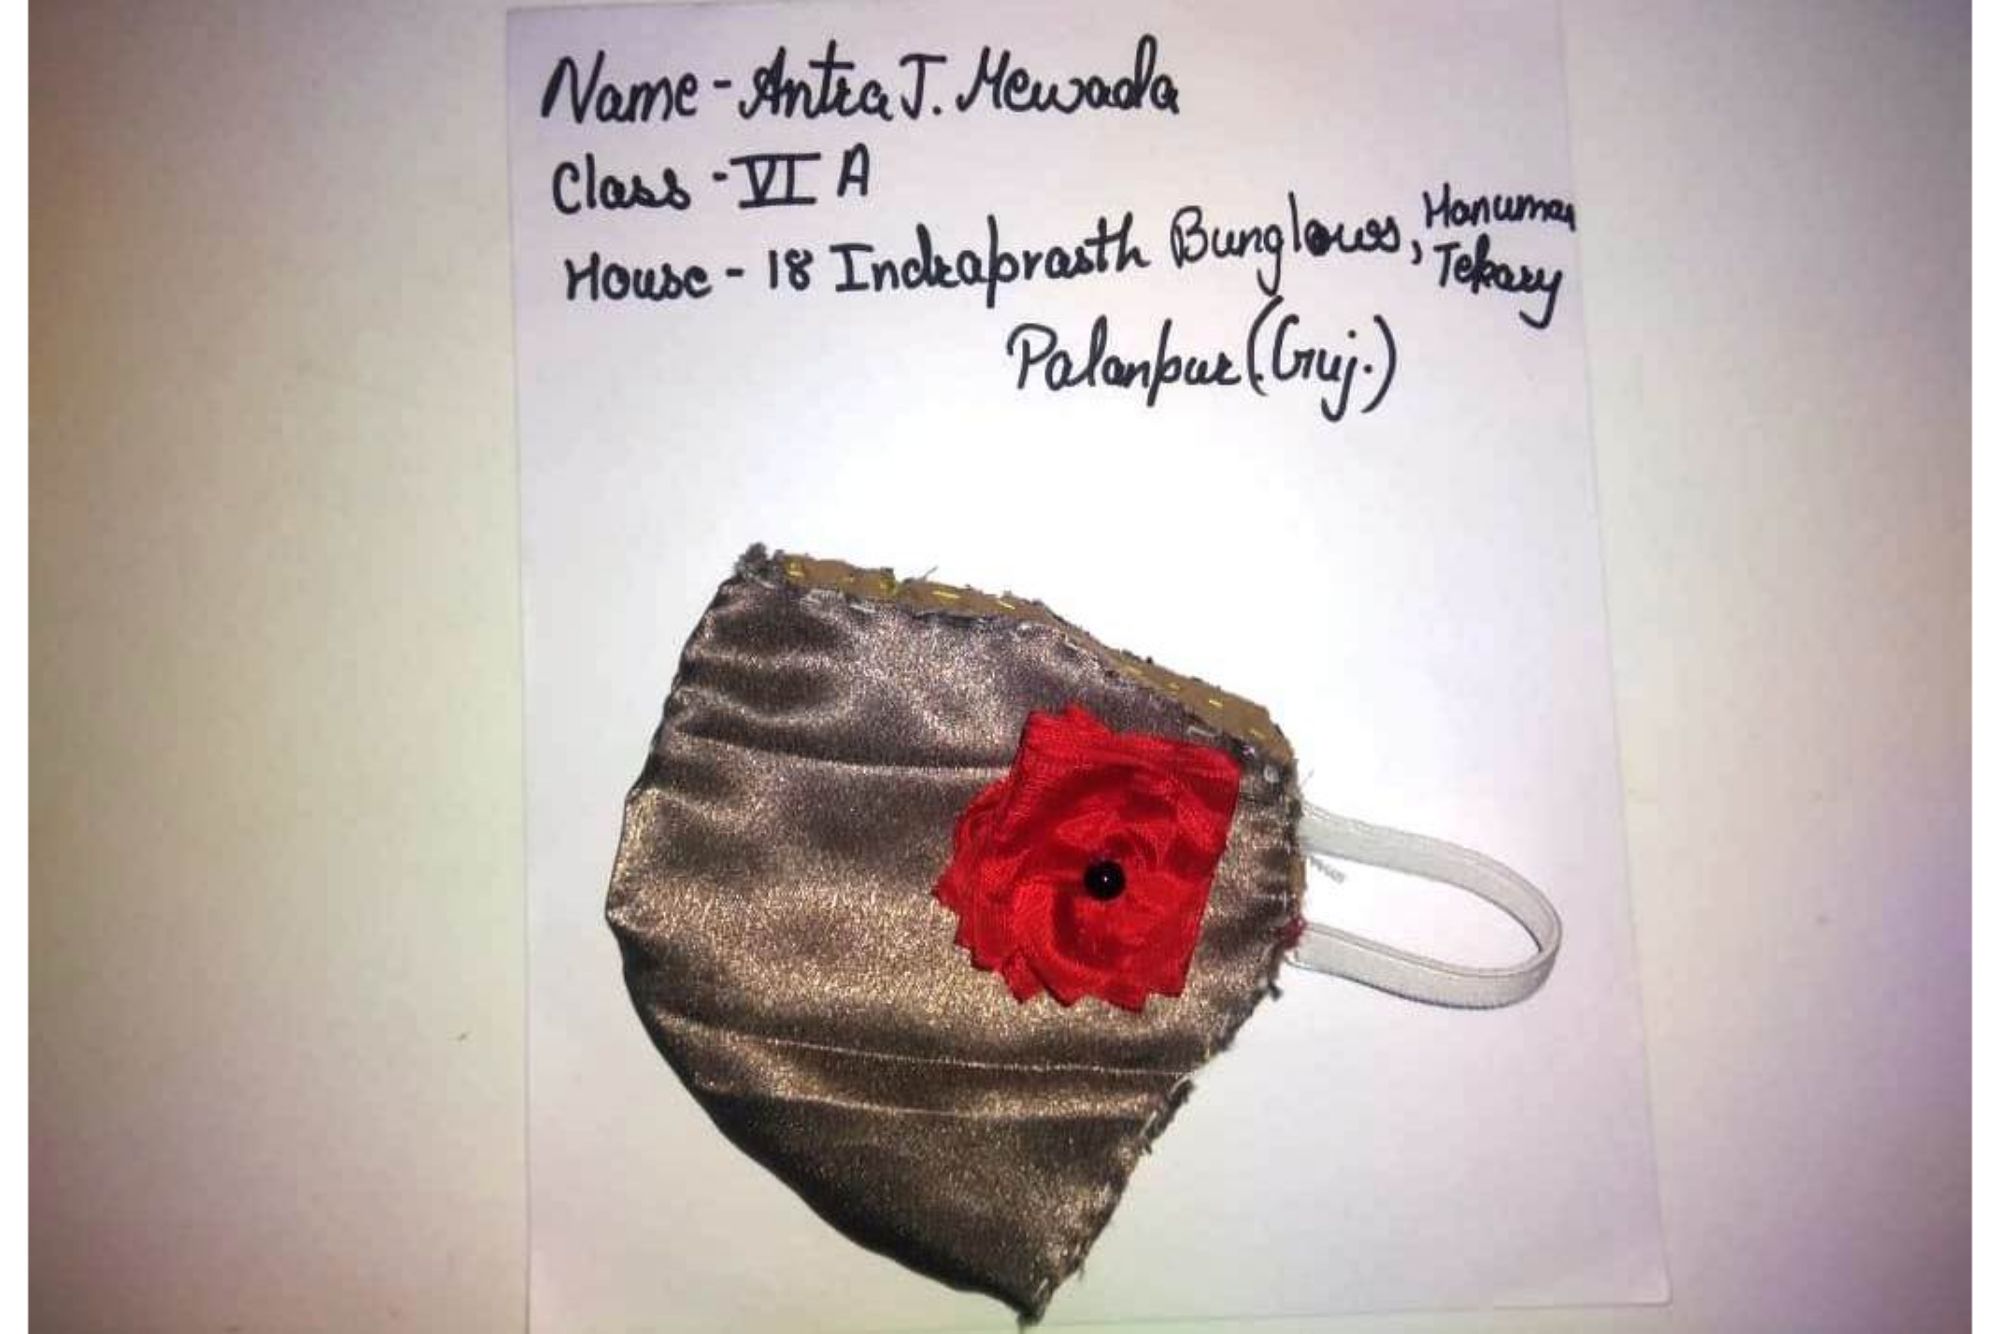 Name - Antra J. Mewada
Class - VI A
House - 18 Indraprasth Bunglows, Hanuman
Tekary
Palanpur (Guj.)